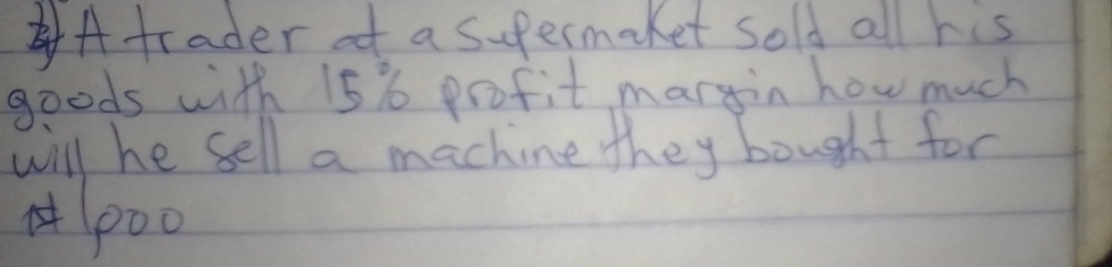 2) A trader at a supermaket sold all his
goods with 15% profit margin how much
will he sell a machine they bought for
₦1,000